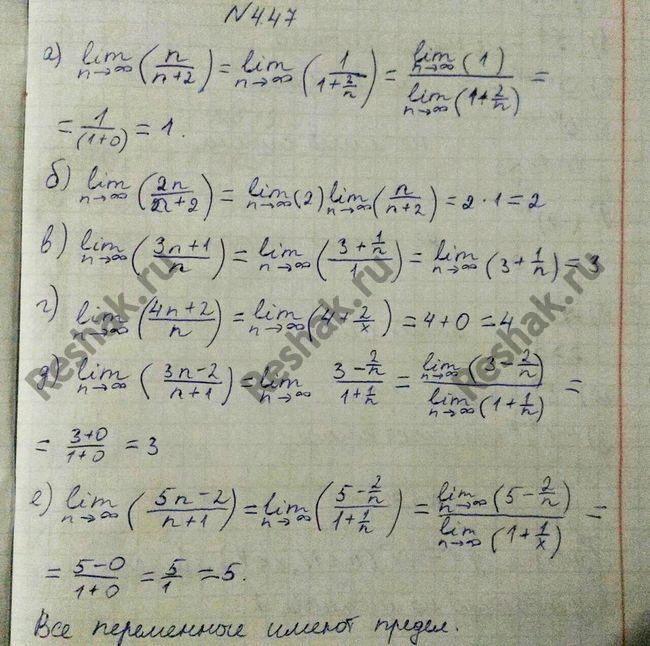 N 4.47
а) lim n→∞ (n/(n+2)) = lim n→∞ (1/(1+2/n)) = lim n→∞ (1) / lim n→∞ (1+2/n) =
= 1/(1+0) = 1.
б) lim n→∞ (2n/(n+2)) = lim n→∞ (2) lim n→∞ (n/(n+2)) = 2·1 = 2
в) lim n→∞ ((3n+1)/n) = lim n→∞ ((3+1/n)/1) = lim n→∞ (3+1/n) = 3
г) lim n→∞ ((4n+2)/n) = lim n→∞ (4+2/x) = 4+0 = 4
д) lim n→∞ ((3n-2)/(n+1)) = lim n→∞ (3-2/n)/(1+1/n) = lim n→∞ (3-2/n) / lim n→∞ (1+1/n) =
= (3+0)/(1+0) = 3
е) lim n→∞ ((5n-2)/(n+1)) = lim n→∞ ((5-2/n)/(1+1/n)) = lim n→∞ (5-2/n) / lim n→∞ (1+1/x) =
= (5-0)/(1+0) = 5/1 = 5.
Все переменные имеют предел.
Reshak.ru
Reshak.ru
Reshak.ru